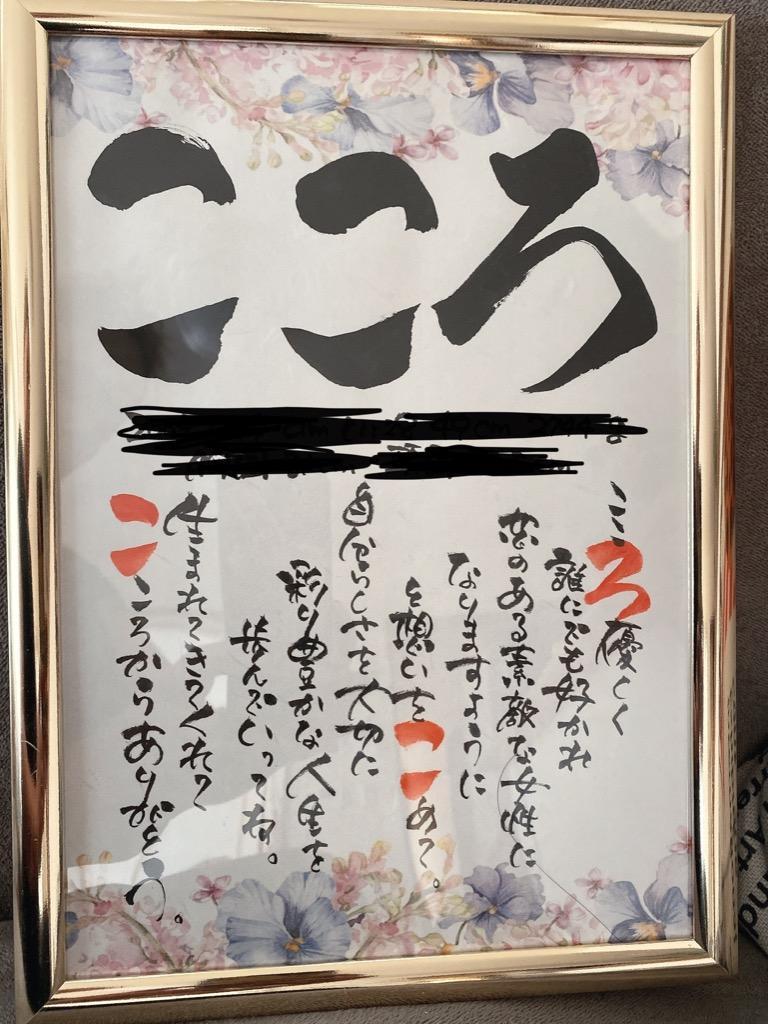 こころ
こころ優しく
誰にでも好かれ
芯のある素敵な女性に
なりますように
と想いをこめて。
自分らしさを大切に
彩り豊かな人生を
歩んでいってね。
生まれてきてくれて
こころからありがとう。